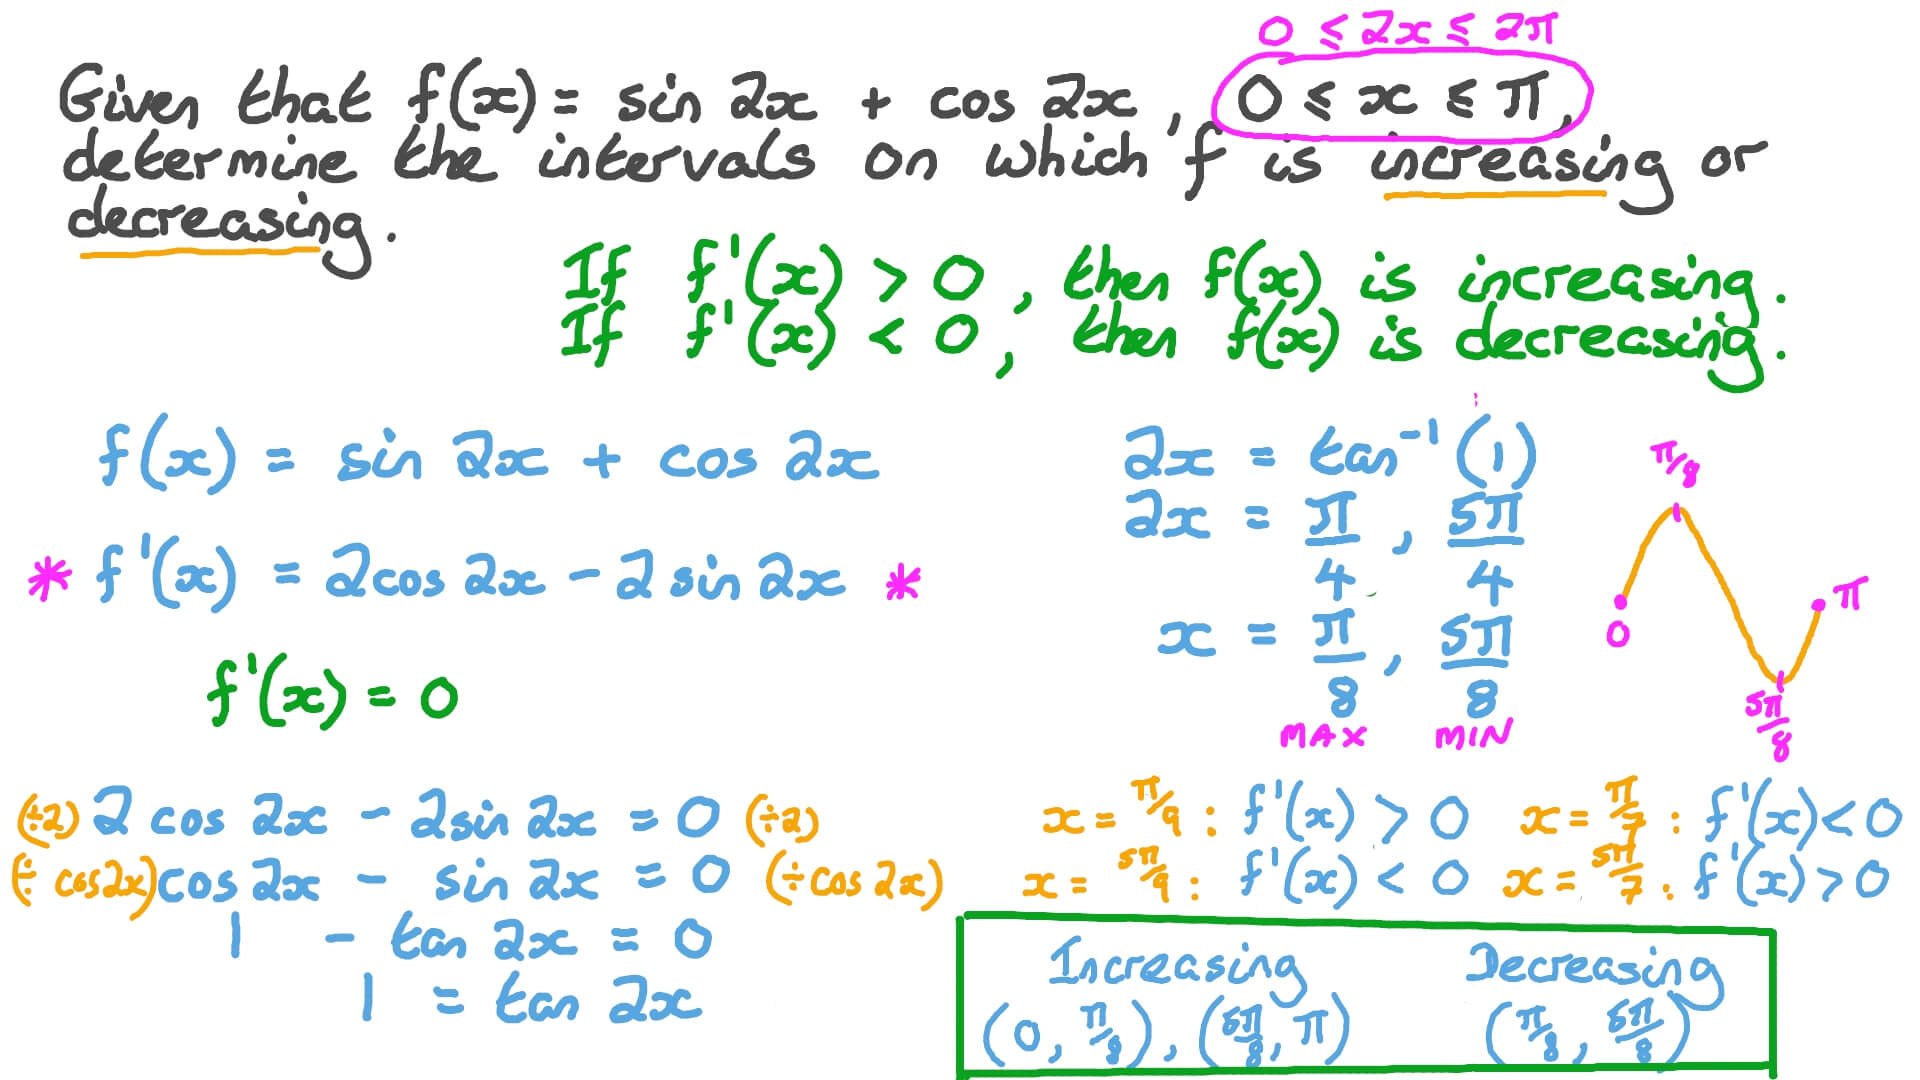 0 ≤ 2x ≤ 2π
Given that f(x) = sin 2x + cos 2x, 0 ≤ x ≤ π,
determine the intervals on which f is increasing or
decreasing.
If f'(x) > 0, then f(x) is increasing.
If f'(x) < 0, then f(x) is decreasing.
f(x) = sin 2x + cos 2x
* f'(x) = 2cos 2x - 2 sin 2x *
f'(x) = 0
(÷2) 2 cos 2x - 2sin 2x = 0 (÷2)
(÷ cos2x) cos 2x - sin 2x = 0 (÷ cos 2x)
1 - tan 2x = 0
1 = tan 2x
2x = tan⁻¹ (1)
2x = π/4, 5π/4
x = π/8, 5π/8
MAX MIN
π/8
0
π
5π/8
x = π/9 : f'(x) > 0 x = π/7 : f'(x) < 0
x = 5π/9 : f'(x) < 0 x = 5π/7 : f'(x) > 0
Increasing Decreasing
(0, π/8), (5π/8, π) (π/8, 5π/8)